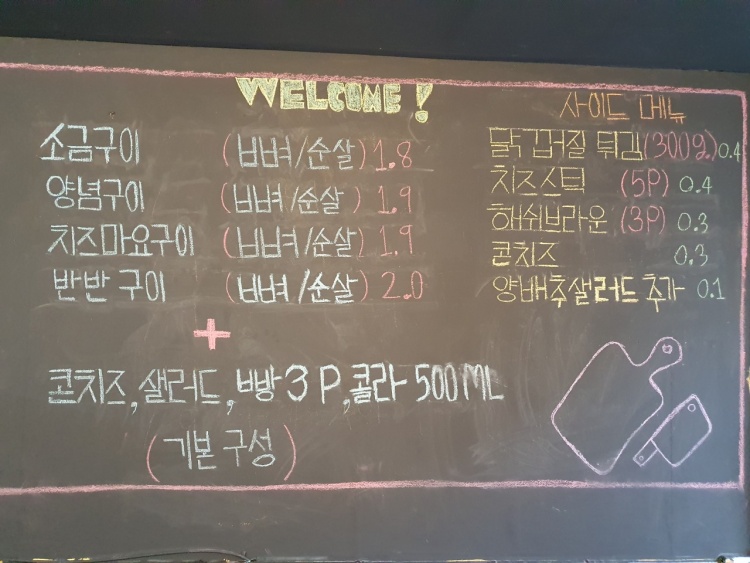 WELCOME!
소금구이 (뼈/순살) 1.8
양념구이 (뼈/순살) 1.9
치즈마요구이 (뼈/순살) 1.9
반반구이 (뼈/순살) 2.0
+
콘치즈, 샐러드, 빵 3P, 콜라 500ML
(기본 구성)
사이드 메뉴
닭껍질 튀김 (300g.) 0.4
치즈스틱 (5P) 0.4
해쉬브라운 (3P) 0.3
콘치즈 0.3
양배추샐러드 추가 0.1